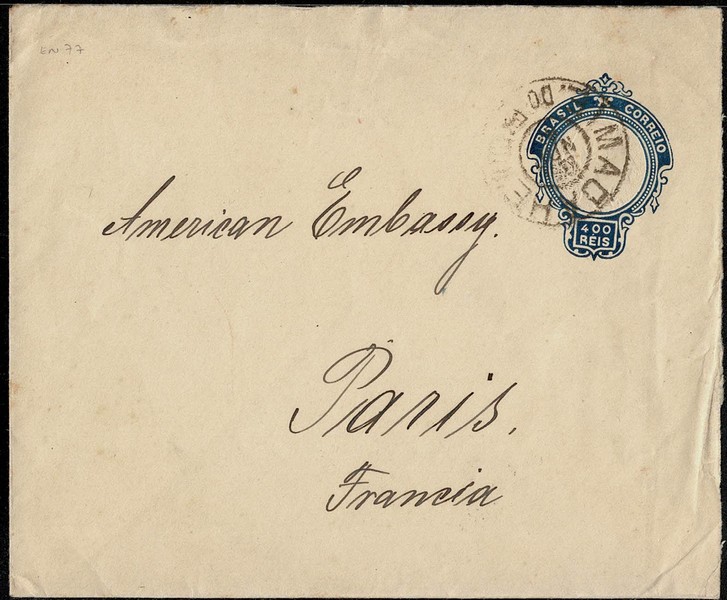 EN 77
BRASIL CORREIO
400
RÉIS
American Embassy.
Paris.
Francia